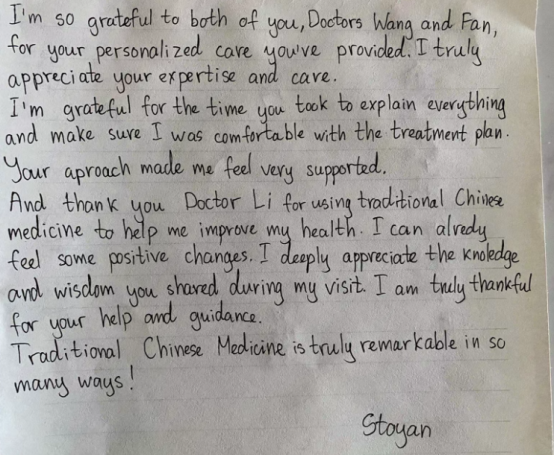 I'm so grateful to both of you, Doctors Wang and Fan,
for your personalized care you've provided. I truly
appreciate your expertise and care.
I'm grateful for the time you took to explain everything
and make sure I was comfortable with the treatment plan.
Your aproach made me feel very supported.
And thank you Doctor Li for using traditional Chinese
medicine to help me improve my health. I can alredy
feel some positive changes. I deeply appreciate the knoledge
and wisdom you shared during my visit. I am truly thankful
for your help and guidance.
Traditional Chinese Medicine is truly remarkable in so
many ways!
Stoyan